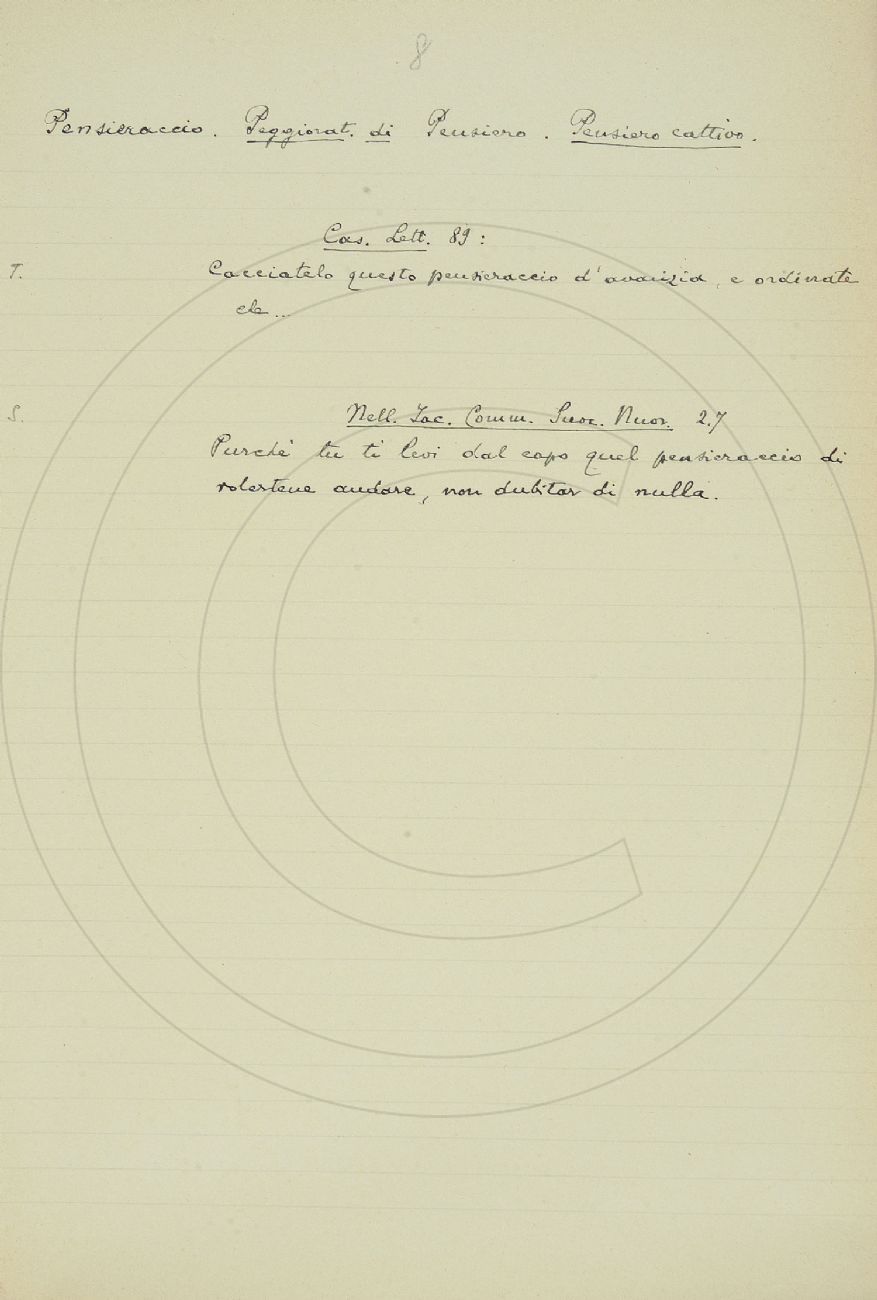 8
Pensieraccio. Peggiorat. di Pensiero. Pensiero cattivo.
Cas. Lett. 89:
T. Cacciatelo questo pensieraccio d'avarizia, e ordinate
che...
S. Nell. Jac. Comm. Suoc. Nuor. 2.7
Purchè tu ti levi dal capo quel pensieraccio di
volertene andare, non dubitar di nulla.